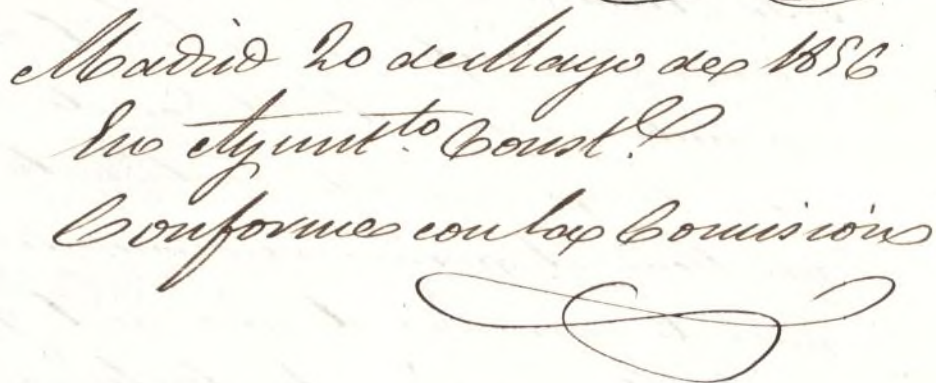 Madrid 20 de Mayo de 1856
En Ayunt.to Const.l
Conforme con la Comisión